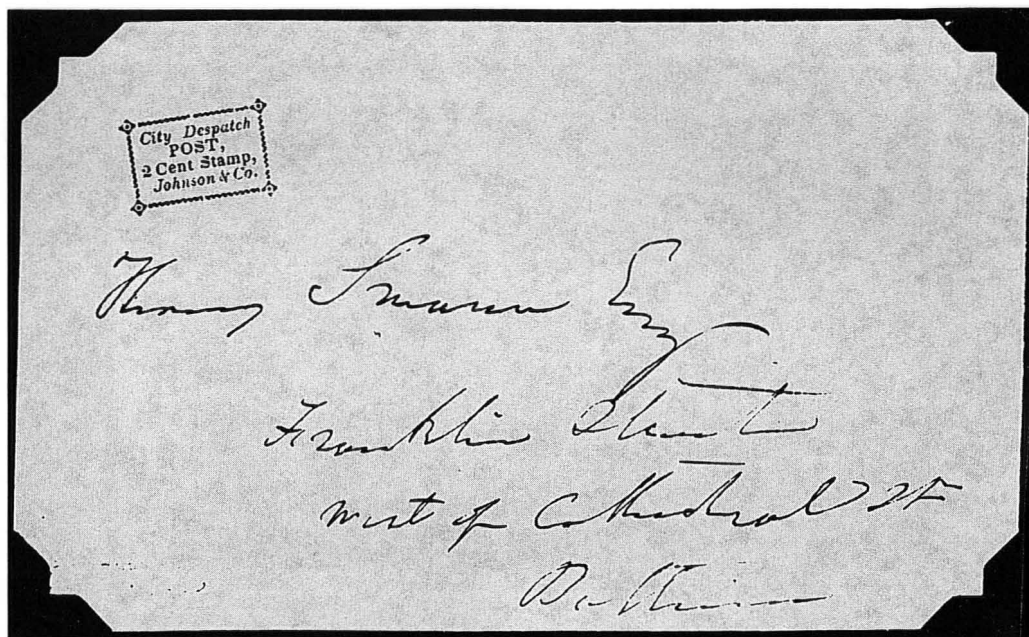 City Despatch
POST,
2 Cent Stamp,
Johnson & Co.
Thomas Swann Esq
Franklin Street
West of Cathedral St
Baltimore